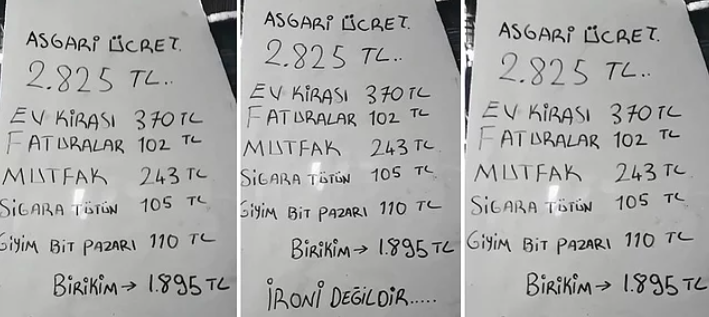 ASGARİ ÜCRET.
2.825 TL..
EV KİRASI 370 TL
FATURALAR 102 TL
MUTFAK 243 TL
SİGARA TÜTÜN 105 TL
GİYİM BİT PAZARI 110 TL
BİRİKİM→ 1.895 TL
ASGARİ ÜCRET.
2.825 TL..
EV KİRASI 370 TL
FATURALAR 102 TL
MUTFAK 243 TL
SİGARA TÜTÜN 105 TL
GİYİM BİT PAZARI 110 TL
BİRİKİM→ 1.895 TL
İRONİ DEĞİLDİR.....
ASGARİ ÜCRET.
2.825 TL..
EV KİRASI 370 TL
FATURALAR 102 TL
MUTFAK 243 TL
SİGARA TÜTÜN 105 TL
GİYİM BİT PAZARI 110 TL
BİRİKİM→ 1.895 TL